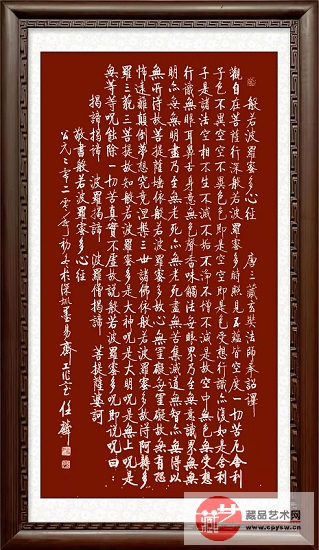 般若波羅蜜多心经 唐三藏玄奘法師奉詔譯
觀自在菩薩行深般若波羅蜜多時照見五蘊皆空度一切苦厄舍利
子色不異空空不異色色即是空空即是色受想行識亦復如是舍利
子是諸法空相不生不滅不垢不淨不增不減是故空中無色無受想
行識無眼耳鼻舌身意無色聲香味觸法無眼界乃至無意識界無無
明亦無無明盡乃至無老死亦無老死盡無苦集滅道無智亦無得以
無所得故菩提薩埵依般若波羅蜜多故心無罣礙無罣礙故無有恐
怖遠離顛倒夢想究竟涅槃三世諸佛依般若波羅蜜多故得阿耨多
羅三藐三菩提故知般若波羅蜜多是大神咒是大明咒是無上咒是
無等等咒能除一切苦真實不虛故說般若波羅蜜多咒即說咒曰:
揭諦揭諦 波羅揭諦 波羅僧揭諦 菩提薩婆訶
敬書般若波羅蜜多心经
公元二零二零年 於深圳墨易齋 任
藏品艺术网
www.cpysw.cn